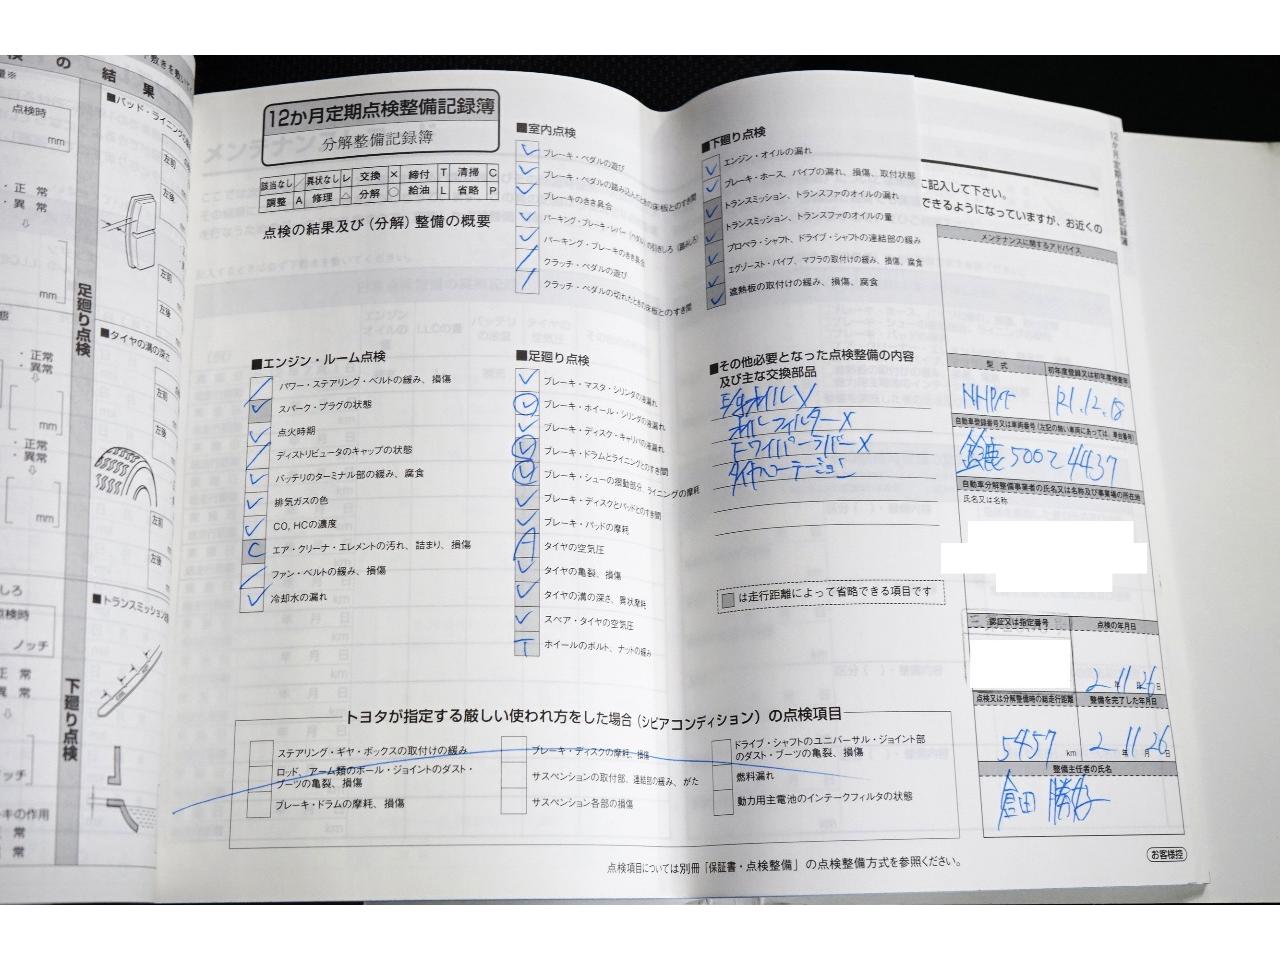 の結果
量※
点検時
mm
・正常
・異常
mm
正常
異常
mm
正常
異常
mm
点検時
ノッチ
正常
異常
ノッチ
キの作用
正常
異常
■パッド・ライニングの
左前
左後
足廻り点検
■タイヤの溝の深さ
左前
左後
■トランスミッション
下廻り点検
12か月定期点検整備記録簿
分解整備記録簿
該当なし / 異状なし レ 交換 × 締付 T 清掃 C
調整 A 修理 △ 分解 ○ 給油 L 省略 P
点検の結果及び(分解)整備の概要
■エンジン・ルーム点検
/ パワー・ステアリング・ベルトの緩み、損傷
レ スパーク・プラグの状態
レ 点火時期
/ ディストリビュータのキャップの状態
レ バッテリのターミナル部の緩み、腐食
レ 排気ガスの色
レ CO、HCの濃度
C エア・クリーナ・エレメントの汚れ、詰まり、損傷
/ ファン・ベルトの緩み、損傷
レ 冷却水の漏れ
■室内点検
レ ブレーキ・ペダルの遊び
レ ブレーキ・ペダルの踏み込んだときの床板とのすき間
レ ブレーキのきき具合
レ パーキング・ブレーキ・レバー(ペダル)の引きしろ(踏みしろ)
レ パーキング・ブレーキのきき具合
/ クラッチ・ペダルの遊び
/ クラッチ・ペダルの切れたときの床板とのすき間
■足廻り点検
レ ブレーキ・マスタ・シリンダの液漏れ
レ ブレーキ・ホイール・シリンダの液漏れ
レ ブレーキ・ディスク・キャリパの液漏れ
レ ブレーキ・ドラムとライニングとのすき間
レ ブレーキ・シューの摺動部分、ライニングの摩耗
レ ブレーキ・ディスクとパッドとのすき間
レ ブレーキ・パッドの摩耗
A タイヤの空気圧
レ タイヤの亀裂、損傷
レ タイヤの溝の深さ、異状摩耗
レ スペア・タイヤの空気圧
T ホイールのボルト、ナットの緩み
■下廻り点検
レ エンジン・オイルの漏れ
レ ブレーキ・ホース、パイプの漏れ、損傷、取付状態
レ トランスミッション、トランスファのオイルの漏れ
レ トランスミッション、トランスファのオイルの量
レ プロペラ・シャフト、ドライブ・シャフトの連結部の緩み
レ エグゾースト・パイプ、マフラの取付けの緩み、損傷、腐食
レ 遮熱板の取付けの緩み、損傷、腐食
■その他必要となった点検整備の内容
及び主な交換部品
E/gオイル X
オイルフィルター X
Fワイパーラバー X
タイヤローテーション
は走行距離によって省略できる項目です
に記入して下さい。
できるようになっていますが、お近くの
12か月定期点検整備記録簿
メンテナンスに関するアドバイス
型式 初年度登録又は初年度検査年
R1.12.18
自動車登録番号又は車両番号(左記の無い車両にあっては、車台番号)
鈴鹿 500 て 4437
自動車分解整備事業者の氏名又は名称及び事業場の所在地
氏名又は名称
認証又は指定番号 点検の年月日
2 年 11 月 26 日
点検又は分解整備時の総走行距離 整備を完了した年月日
5457 km 2 年 11 月 26 日
整備主任者の氏名
倉田
トヨタが指定する厳しい使われ方をした場合(シビアコンディション)の点検項目
ステアリング・ギヤ・ボックスの取付けの緩み
ロッド、アーム類のボール・ジョイントのダスト・
ブーツの亀裂、損傷
ブレーキ・ドラムの摩耗、損傷
ブレーキ・ディスクの摩耗、損傷
サスペンションの取付部、連結部の緩み、がた
サスペンション各部の損傷
ドライブ・シャフトのユニバーサル・ジョイント部
のダスト・ブーツの亀裂、損傷
燃料漏れ
動力用主電池のインテークフィルタの状態
点検項目については別冊「保証書・点検整備」の点検整備方式を参照ください。
お客様控